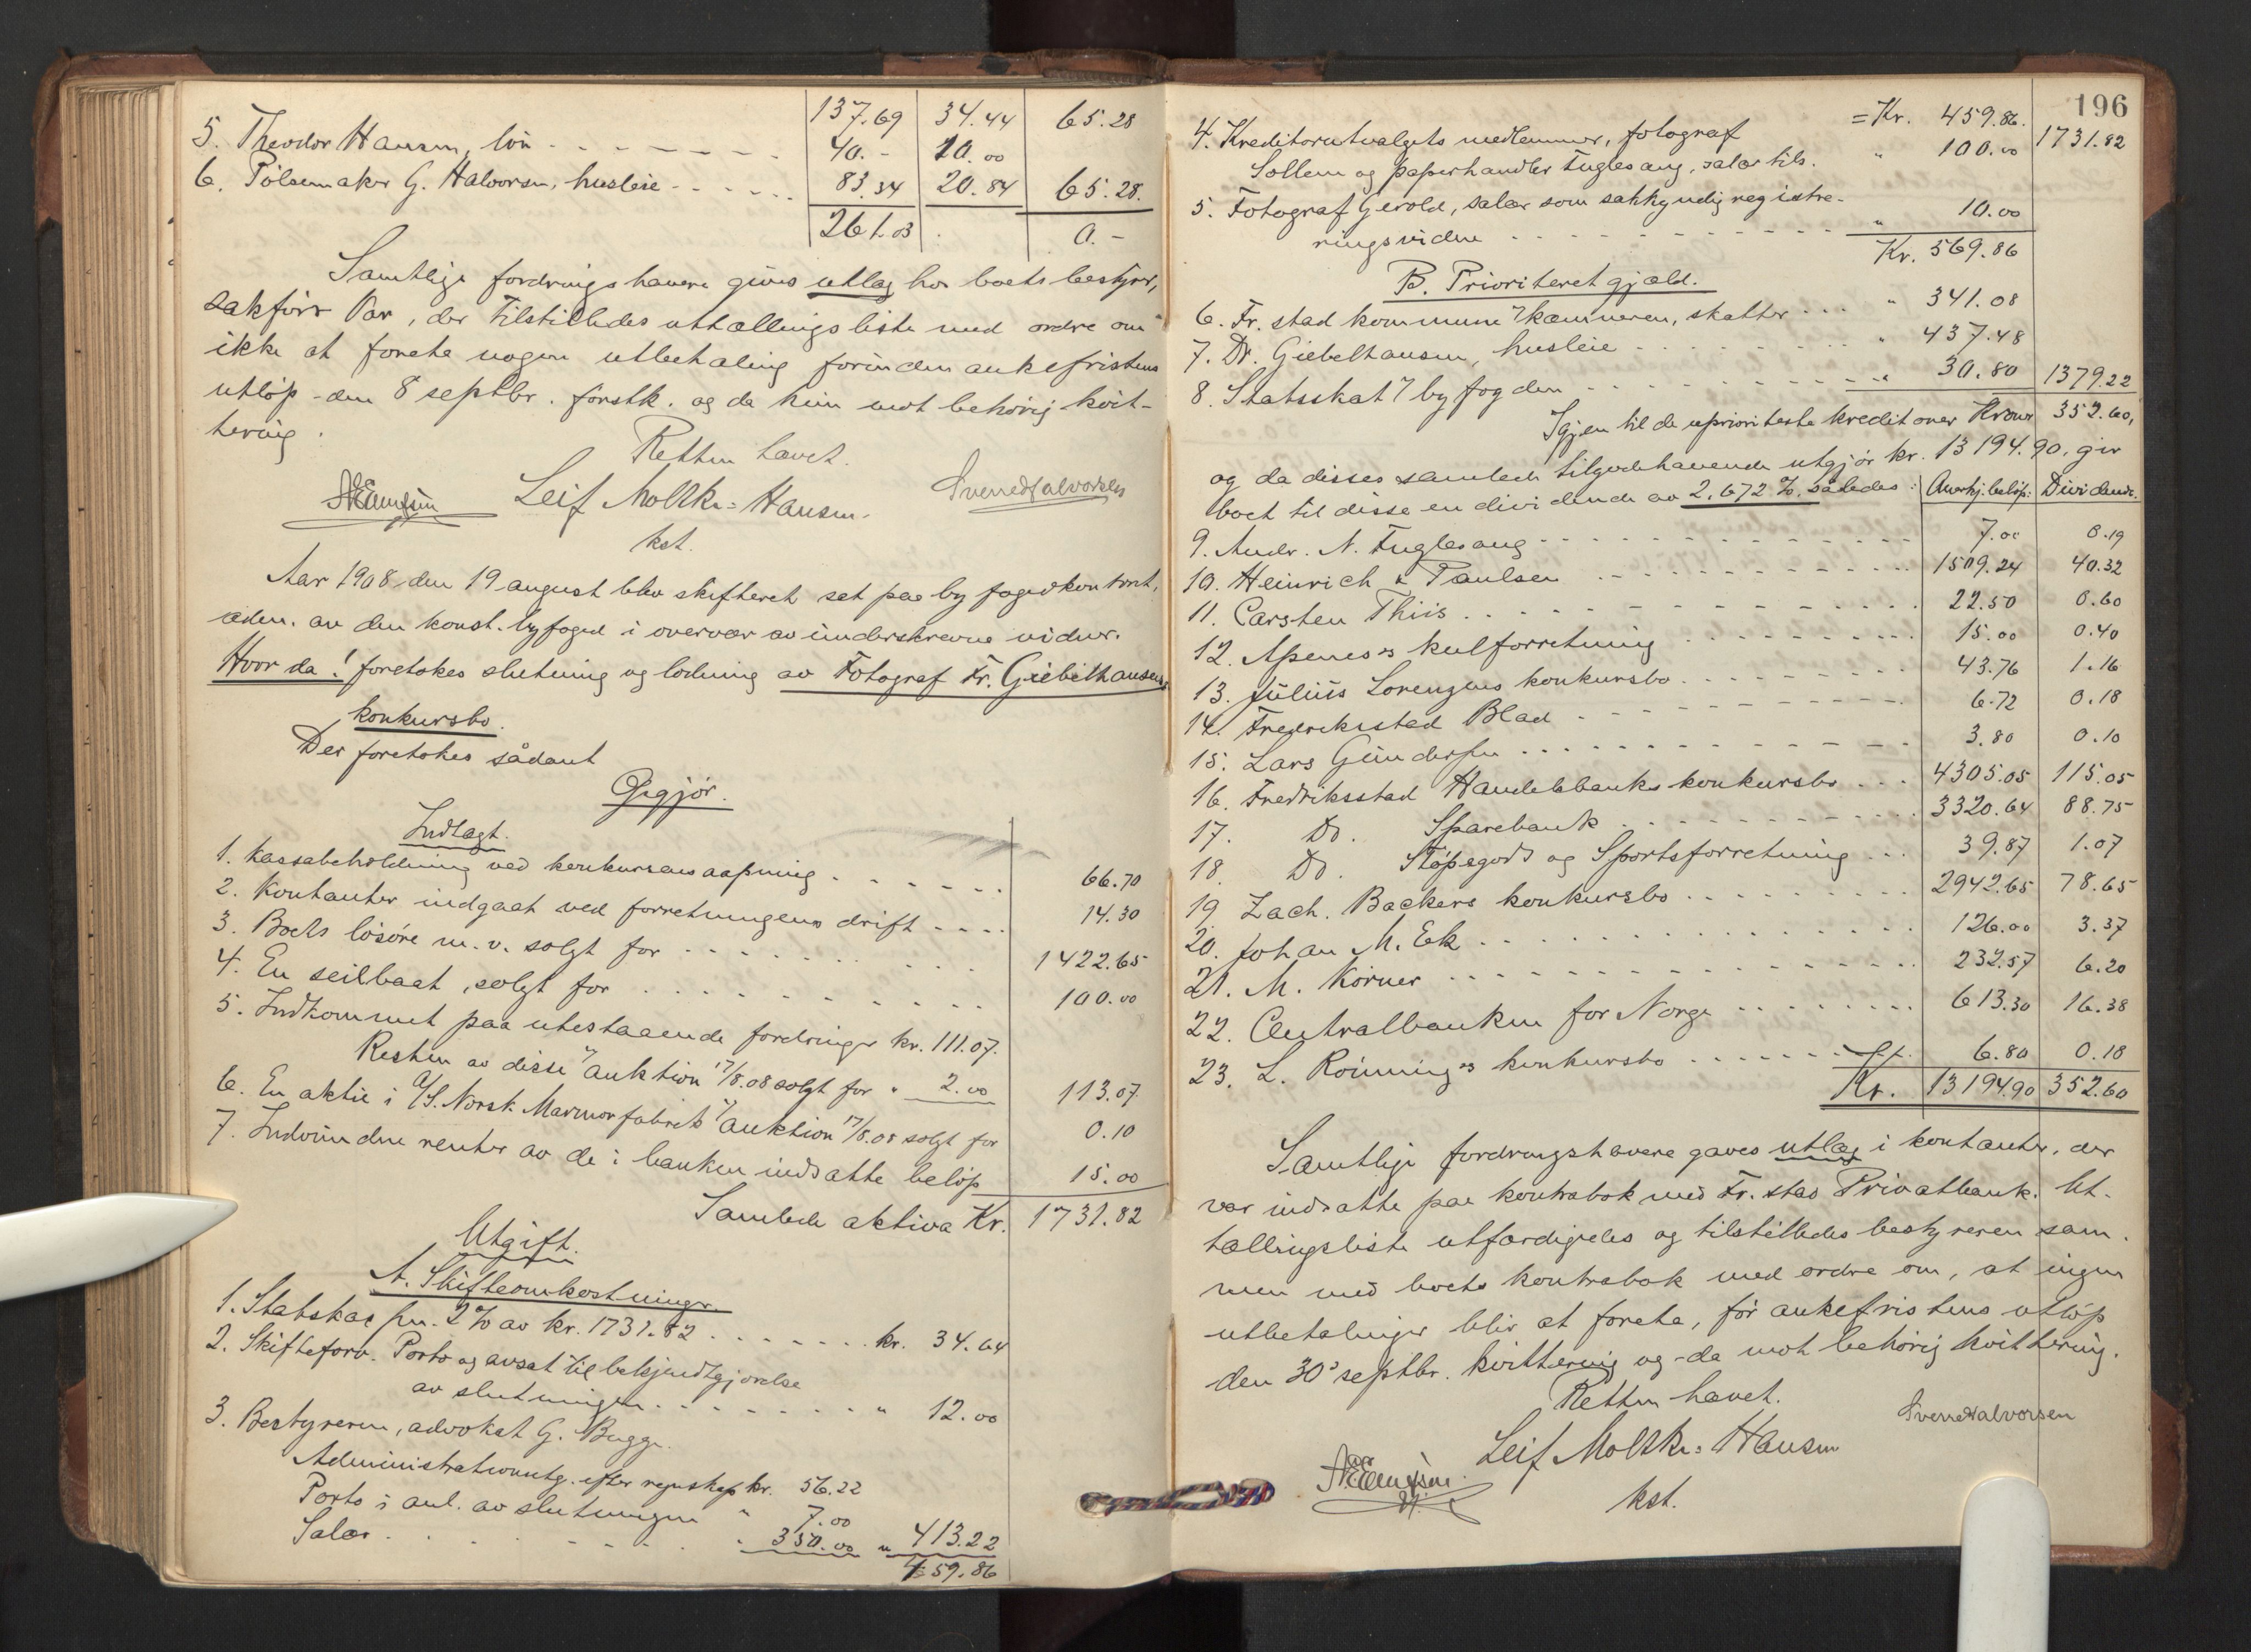 137.69 34.44 65.28
5. Theodor Hansen, lön - - - - - - - 40.- 10.00
6. Pölsemaker G. Halvorsen, husleie - - - - - 83.34 20.84 65.28.
261.03 0.-
Samtlige fordringshavere gives utlæg hos boets bestyrer,
sakförer, der tilstilledes uttællingsliste med ordre om
ikke at foreta nogen utbetaling forinden ankefristens
utlöp - den 8 septbr. förstk. og da kun mot behörig kvit-
tering.
Retten hævet.
Leif Moltke-Hansen.
Sverre Halvorsen
kst.
Aar 1908 den 19 august blev skifteret sat paa byfogedkontoret,
adm. av den konst. byfoged i overvær av underskrevne vidner.
Hvor da! foretokes slutning og lodning av Fotograf Fr. Giebelhausens
konkursbo.
Der foretokes sådant
Opgjör.
Indtægt.
1. Kassabeholdning ved konkursens aapning - - - - - - 66.70
2. Kontanter indgaat ved forretningens drift - - - - 14.30
3. Boets lösöre m.v. solgt for - - - - - - - 1422.65
4. En seilbaat, solgt for - - - - - - - - 100.00
5. Indkommet paa utestaaende fordringer kr. 111.07.
Resten av disse v/ auktion 17/8.08 solgt for " 2.00 113.07
6. En aktie i A/S. Norsk Marmorfabrik v/ auktion 17/8.08 solgt for 0.10
7. Indvundne renter av de i banken indsatte belöp 15.00
Samlede aktiva Kr. 1731.82
Utgift.
A. Skifteomkostninger.
1. Statskassen 2% av kr. 1731.82 - - - - - - kr. 34.64
2. Skifteforv. Porto og avsat til bekjendtgjörelse
av slutningen - - - - - - - - " 12.00
3. Bestyreren, advokat G. Bugge.
Administrationsutg. efter regnskap kr. 56.22
Porto i anl. av slutningen " 7.00
Salær - - - - - - " 350.00 " 413.22
459.86
196
= Kr. 459.86. 1731.82
4. Kreditorutvalgets medlemmer, fotograf
Sollem og papirhandler Fuglesang, salær tils. " 100.00
5. Fotograf Gerold, salær som sakkyndig registre-
ringsvidne - - - - - - - - - - " 10.00
Kr. 569.86
B. Prioriteret gjæld.
6. Fr.stad kommune v/ kæmneren, skatter - - - " 341.08
7. Dr. Giebelhausen, husleie - - - - - - - " 437.48
8. Statsskat v/ byfogden - - - - - - - - " 30.80 1379.22
Igjen til de upriorіterte kreditorer Kroner 352.60,
og da disses samlede tilgodehavende utgjör kr. 13194.90, gir
boet til disse en dividende av 2.672 %, således: Anerkj. belöp: Dividende.
9. Andr. N. Fuglesang - - - - - - - - - 7.00 0.19
10. Heinrich & Paulsen - - - - - - - - 1509.24 40.32
11. Carsten Thiis - - - - - - - - - - 22.50 0.60
12. Apenes's kulforretning - - - - - - - 15.00 0.40
13. Julius Lorenzens konkursbo - - - - - - 43.76 1.16
14. Fredriksstad Blad - - - - - - - - - 6.72 0.18
15. Lars Gundersen - - - - - - - - - - 3.80 0.10
16. Fredriksstad Handelsbanks konkursbo - - - 4305.05 115.05
17. Do. Sparebank - - - - - - - - - 3320.64 88.75
18. Do. Stöpegods og Sportsforretning - - - 39.87 1.07
19. Zach. Backers konkursbo - - - - - - - 2942.65 78.65
20. Johan M. Eek - - - - - - - - - - - 126.00 3.37
21. M. Körner - - - - - - - - - - - - 232.57 6.20
22. Centralbanken for Norge - - - - - - - 613.30 16.38
23. L. Rönning's konkursbo - - - - - - - 6.80 0.18
Kr. 13194.90 352.60
Samtlige fordringshavere gaves utlæg i kontanter, der
var indsatte paa kontrabok med Fr.stad Privatbank. Ut-
tællingsliste utfærdigedes og tilstilledes bestyreren sam-
men med boets kontrabok med ordre om, at ingen
utbetalinger blir at foreta, för ankefristens utlöp
den 30' septbr. kvittering og - da mot behörig kvittering.
Retten hævet.
Sverre Halvorsen
Leif Moltke-Hansen
kst.